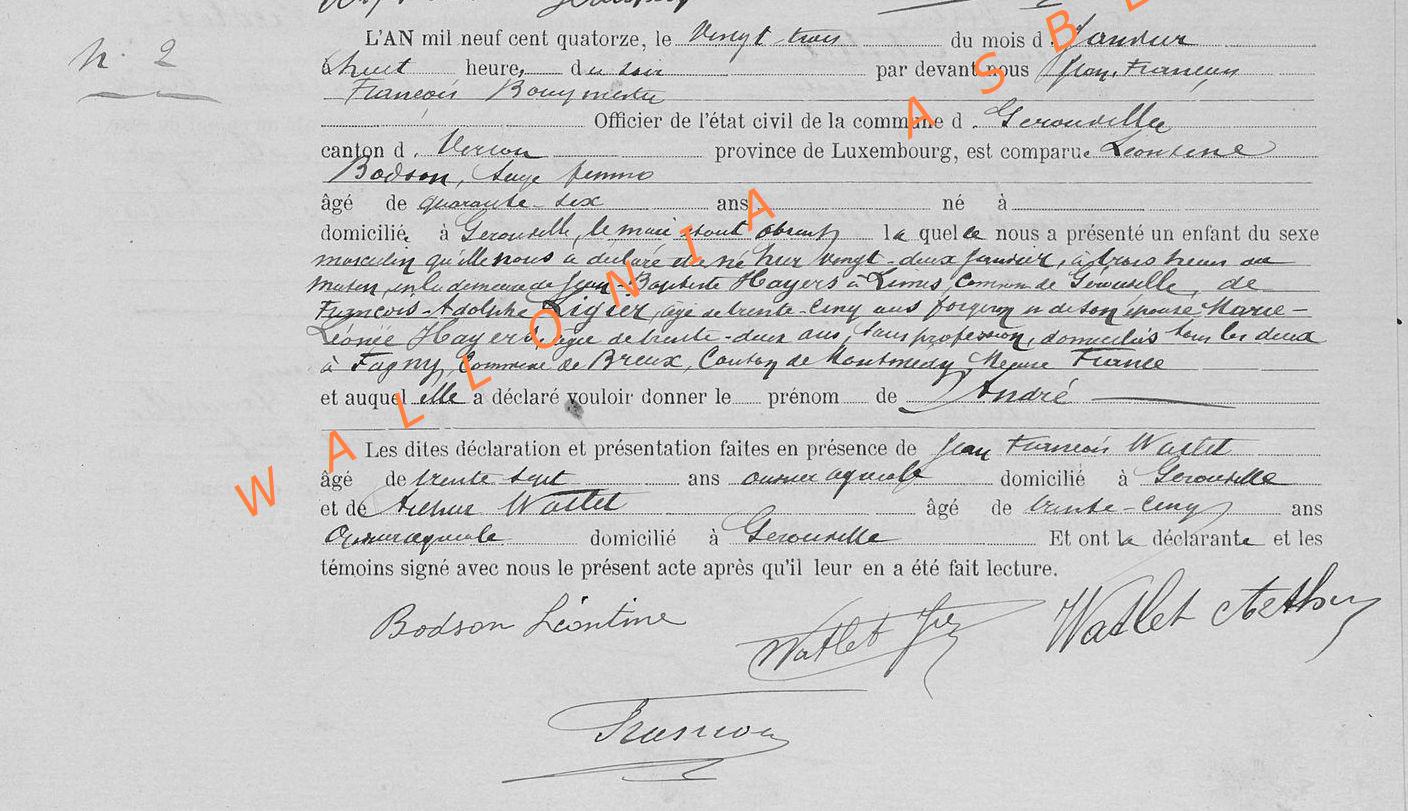 N. 2
L'AN mil neuf cent quatorze, le vingt trois du mois de Janvier
à huit heures du soir par devant nous Jean, François
François Bourgmestre
Officier de l'état civil de la commune de Gerouville
canton de Virton province de Luxembourg, est comparue Léontine
Bodson, Sage femme
âgé de quarante-six ans né à
domiciliée à Gerouville, le mari étant absent laquelle nous a présenté un enfant du sexe
masculin qu'elle nous a déclaré être né hier vingt-deux janvier, à trois heures du
matin, en la demeure de Jean-Baptiste Hayers à Limes, Commune de Gérouville, de
François-Adolphe Ligier, âgé de trente-cinq ans forgeron et de son épouse Marie-
Léonie Hayers, âgée de trente-deux ans, sans profession, domiciliés tous les deux
à Fagny, Commune de Breux, Canton de Montmedy, Meuse France
et auquel elle a déclaré vouloir donner le prénom de André
Les dites déclaration et présentation faites en présence de Jean François Watlet
âgé de trente sept ans ouvrier agricole domicilié à Gerouville
et de Arthur Watlet âgé de trente-cinq ans
Ouvrier agricole domicilié à Gerouville Et ont la déclarante et les
témoins signé avec nous le présent acte après qu'il leur en a été fait lecture.
Bodson Léontine
Watlet
Watlet Arthur
WALLONIA ASB